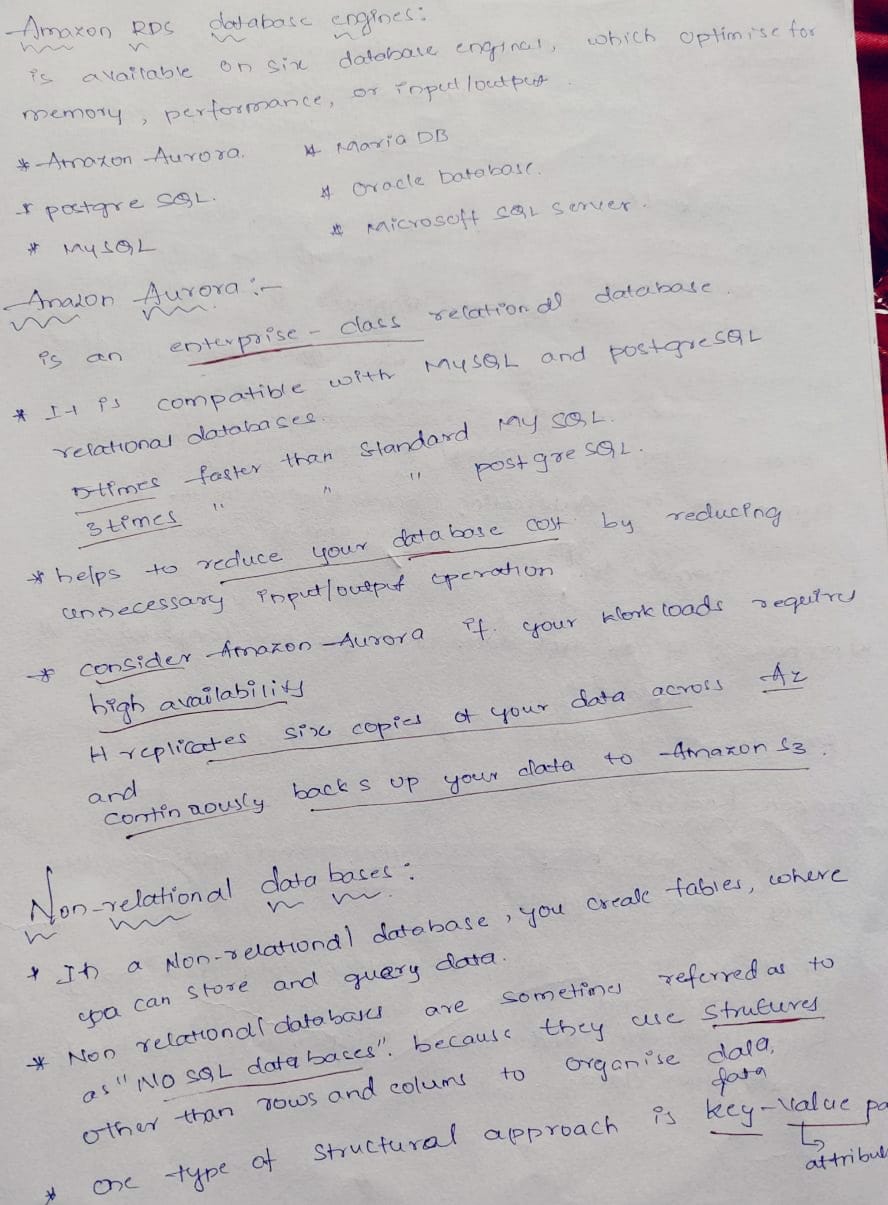 Amazon RDS database engines:
is available on six database engines, which optimise for
memory, performance, or input/output
* Amazon Aurora. * Maria DB
* postgre SQL. * Oracle Database.
* MySQL * Microsoft SQL Server.
Amazon Aurora :-
is an enterprise - class relational database
* It is compatible with MySQL and postgreSQL
relational databases.
5times faster than Standard My SQL.
3 times " " " post gre SQL.
* helps to reduce your data base cost by reducing
unnecessary input/output operation
* consider Amazon Aurora if your Work loads require
high availability
It replicates six copies of your data across AZ
and
continuously backs up your data to Amazon S3.
Non-relational data bases:
* In a Non-relational database, you create tables, where
you can store and query data.
* Non relational databases are sometimes referred as to
as "NO SQL data bases". because they use Strutures
other than rows and colums to organise data.
* one type of structural approach is key-value pa
data
attribu